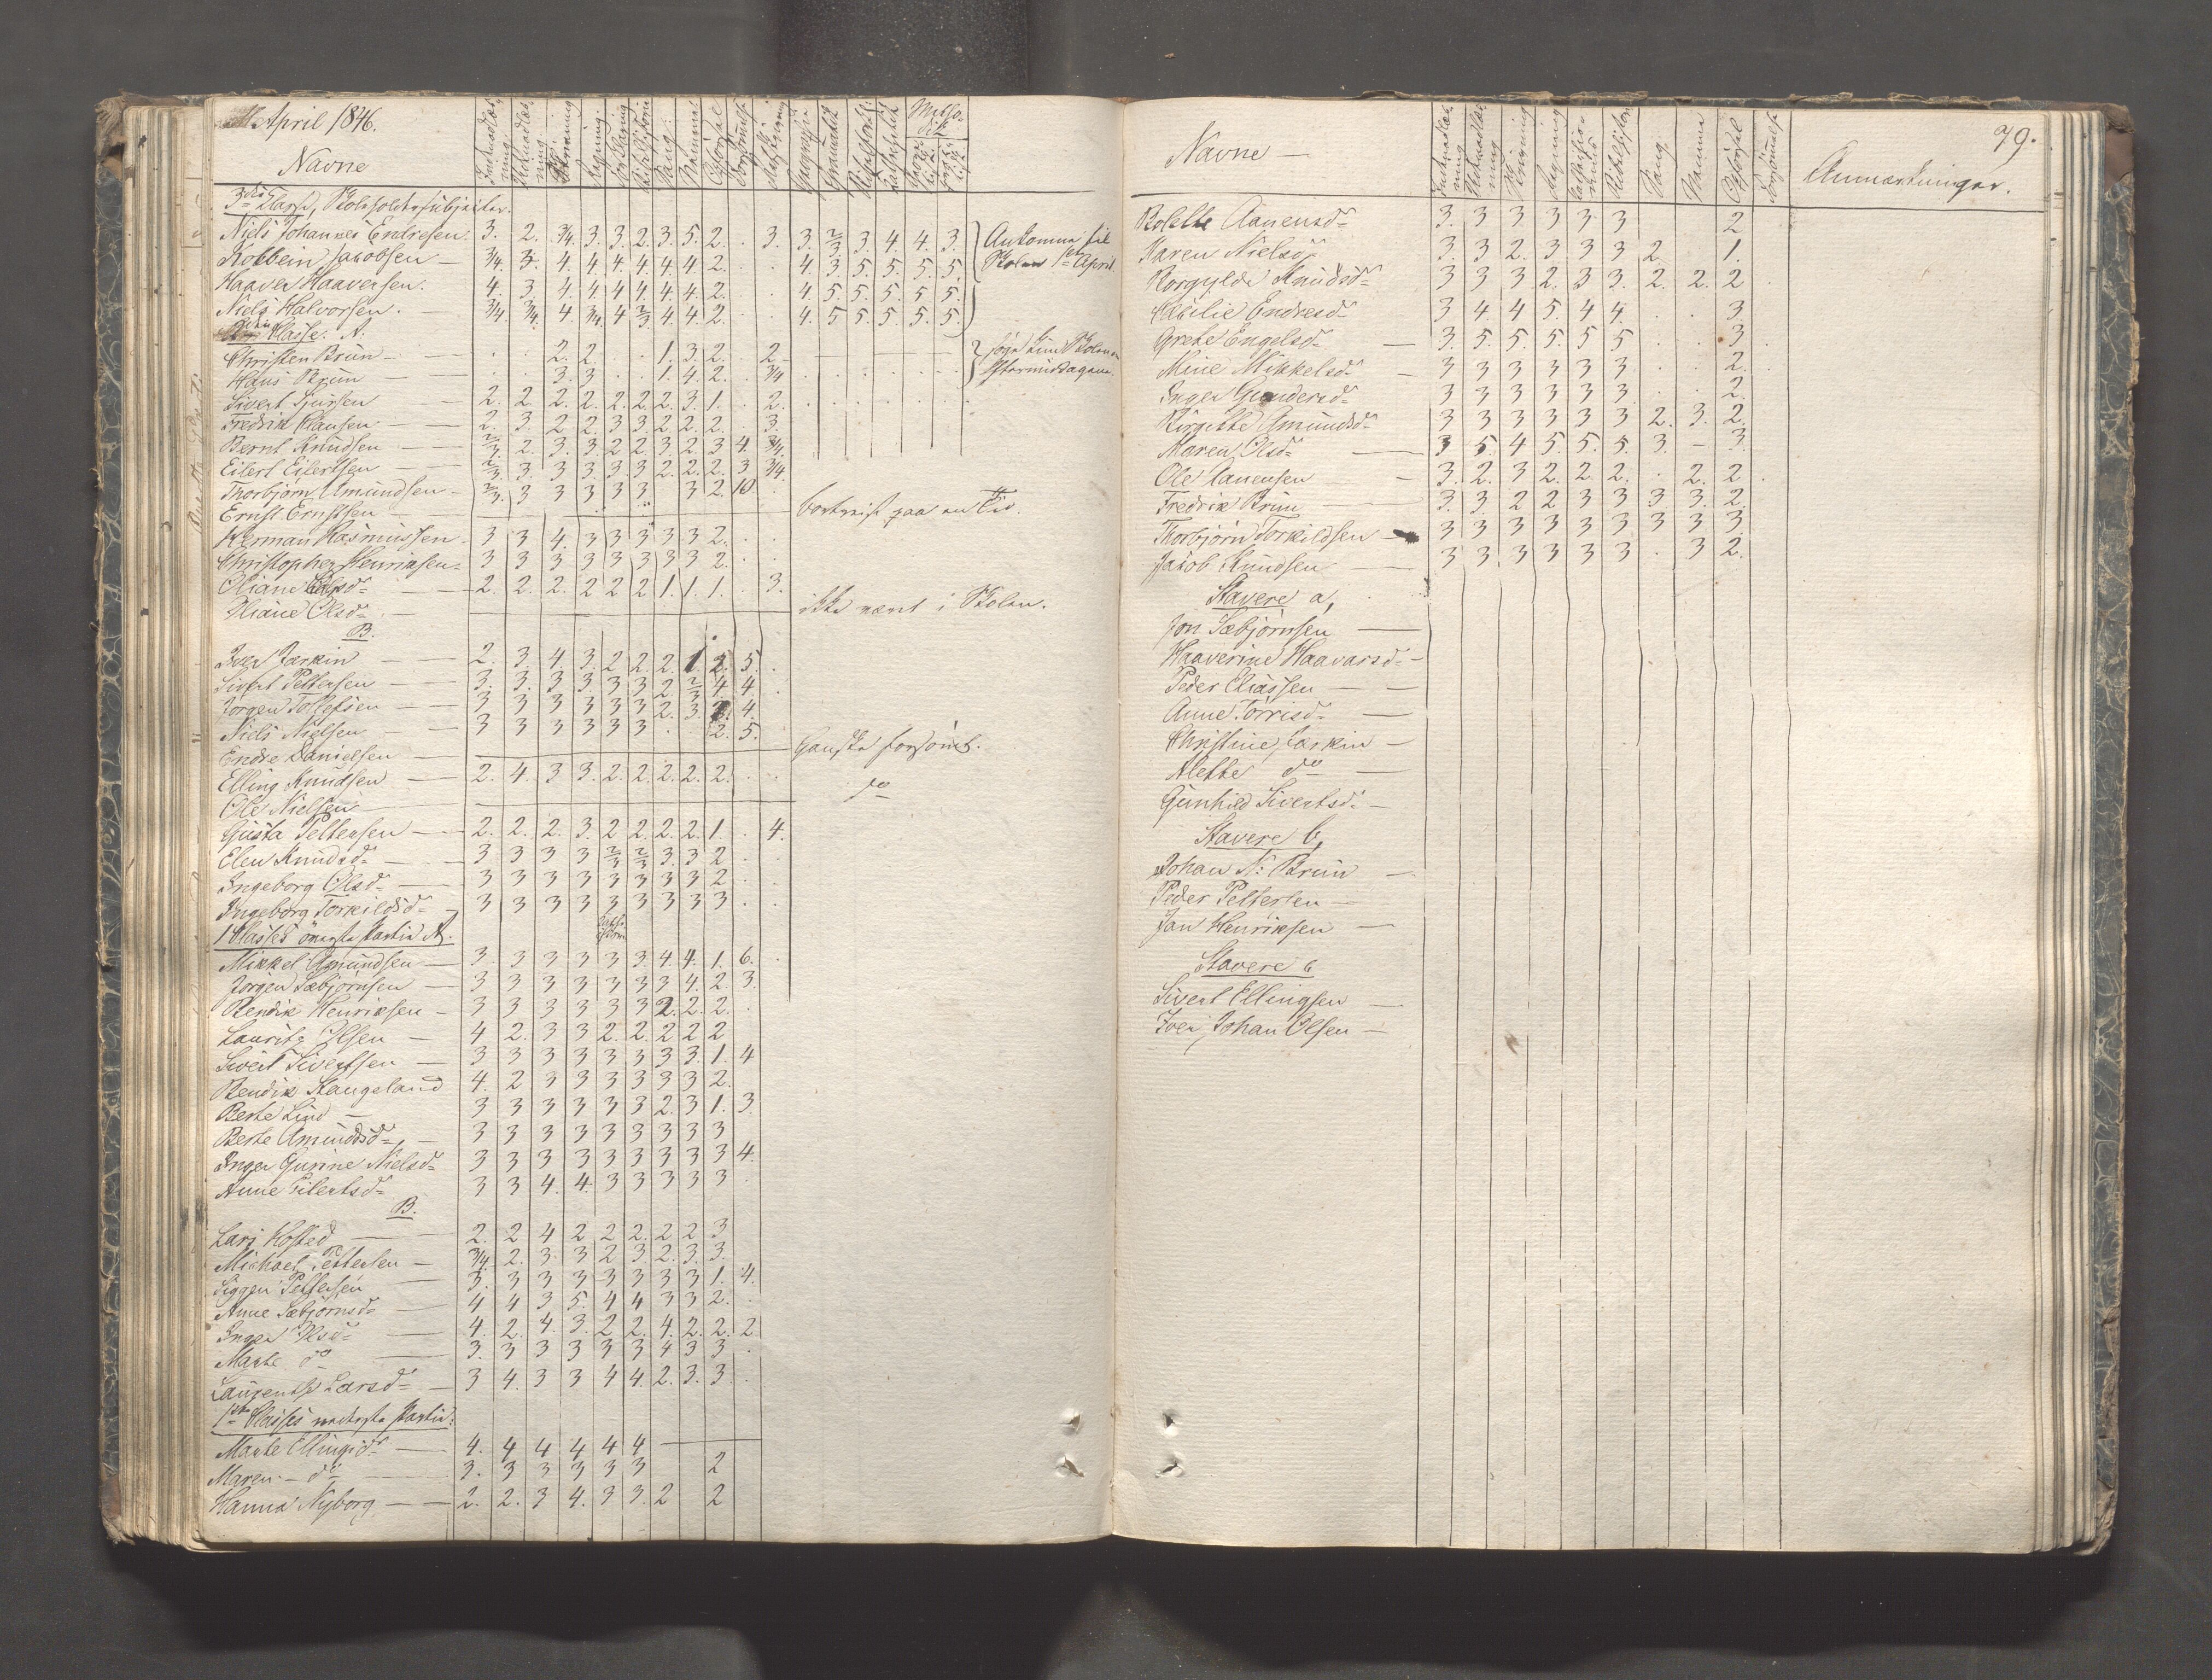 April 1846.
Navne
3die Classe, Skoleholdersubjecter.
Niels Johannes Endresen. 3. 2. 3/4. 3. 3. 2. 3. 5. 2. . 3. 3. 2/3 3. 4. 4. 3. Ankomne til
Kolbein Jacobsen 3/4. 3. 4. 4. 4. 4. 4. 4. 2. . 4. 3. 5. 5. 5. 5. Skolen 1ste April
Haaver Haaversen. 4. 3. 4. 4. 4. 4. 4. 4. 2. . 4. 5. 5. 5. 5. 5.
Niels Halvorsen. 3/4. 3/4. 4. 3/4. 4. 2/3 4. 4. 2. . 4. 5 5. 5. 5. 5.
Classe. A.
Christen Brun 2. 2. 1. 3. 2. 2 Skolen
Hans Brun 3. 3. 1. 4. 2. 3/4 Eftermiddagene.
Sivert Sjursen 2. 2 2. 2. 2. 2. 2. 3. 1. 2.
Fredrik Clausen 2. 3. 2 2. 3. 3. 2. 2. 2. 3.
Bernt Knudsen 2/3. 2. 3. 3. 2. 2. 3. 2. 3 4. 3/4.
Eilert Eilertsen 2/3. 3. 3 3. 3. 3. 2. 2. 2. 3 3/4
Thorbjørn Amundsen 2/3. 3 3 3 3 3 3 2. 10
Ernst Ernstsen bortreist paa en Tid.
Herman Rasmussen 3 3 4. 3 3 3 3 3 2.
Christopher Henriksen 3 3 3 3 3 3 3 3 2.
Oliane Olsd 2. 2. 2. 2 2 2 1. 1. 1. 3.
Oliane Olsd ikke været i Skolen.
B.
Iver Larkin 2. 3. 4. 3. 2 2. 2. 1 2. 5.
Sivert Pettersen 3. 3. 3 3 3 3 2 2/3 4. 4.
Jørgen Tollefsen 3 3 3 3 3 3 2. 3. 4.
Niels Nielsen 3 3 3 3 3 3 . 2. 5.
Endre Danielsen Ganske forsømt.
Elling Knudsen 2. 4. 3 3. 2. 2. 2. 2. 2.
Ole Nielsen do
Gusta Pettersen 2. 2. 2. 3. 2 2. 2. 2. 1. . 4.
Elen Knudsd 3 3 3 3 2/3 2/3 3. 3 2
Ingeborg Olsd 3 3 3 3 3 3 3 3 2
Ingeborg Torkildsd 3 3 3 3 3 3 3 3 3
1 Classes øverste Partie A.
Mikkel Amundsen 3. 3 3 3 3 3. 4. 4. 1. 6.
Jørgen Sæbjørnsen 3 3 3 3 3 3 3 4. 2. 3.
Bendik Henriksen 3 3 3 3 3 3 2. 2. 2.
Lauritz Olsen 4 2. 3 3 2. 2. 2 2 2
Sivert Sivertsen 3 3 3 3 3 3 3 3. 1. 4
Bendik Stangeland 4. 2 3 3 3 3 3 3 2.
Berte Lind 3 3 3 3 3 3 2. 3 1. 3
Berte Amundsd 3 3 3 3 3 3 3 3 3
Inger Gurine Nielsd 3 3 3 3 3 3 3 3 3 4.
Anne Eilertsd 3 3 4. 4. 3 3 3 3 3
B.
Lars Hosted 2. 2 4 2 2 2. 2 2 3
Michael Pettersen 3/4 2. 3. 3 2 3. 2. 3. 3.
Siggen Pettersen 3. 3 3 3 3 3 3 3 1. 4.
Anne Sæbjørnsd 4 4 3 5. 4 4 3 3 2.
Inger Olsd 4. 2. 4. 3. 2 2. 4. 2. 2. 2
Marte do 3. 3 3 3 3 3 4 3 3
Laurentse Larsd 3 4. 3 3 4 4. 2. 3. 3.
1ste Classes nederste Partie:
Marte Ellingsd 4. 4 4 4 4 4
Maren do 3. 3 3 3 3 3 2
Hanna Nyborg 2. 2. 3 4. 3 3. 2 2
79.
Navne Anmærkninger.
Bolette Aanensd 3. 3 3 3 3 3 2
Karen Nielsd 3. 3 2. 3 3 3 2 1.
Borgylde Knudsd 3 3 3 2. 3 3. 2. 2. 2
Cecilie Endresd 3 4 4 5. 4 4. 3.
Grete Engelsd 3. 5. 5. 5. 5 5 3
Mine Mikkelsd 3 3 3 3 3 3 2.
Inger Gundersd 3 3 3 3 3 3. 2.
Birgitte Amundsd 3 3 3 3 3 3 2. 3. 2.
Maren Olsd 3 5. 4 5. 5. 5. 3. — 3.
Ole Aanensen 3. 2. 3 2. 2. 2. . 2. 2
Fredrik Brun 3. 3. 2 2 3 3 3. 3. 2.
Thorbjørn Torkildsen 3 3 3 3 3 3 3 3 3.
Jacob Knudsen 3 3 3 3 3 3 . 3 2.
Stavere a,
Jon Sæbjørnsen
Haaverine Haavarsd
Peder Eliassen
Anne Torrisd
Christine Larkin
Alette do
Gunhild Sivertsd
Stavere b,
Johan N: Brun
Peder Pettersen
Jan Henriksen
Stavere c
Sivert Ellingsen
Iver Johan Olsen